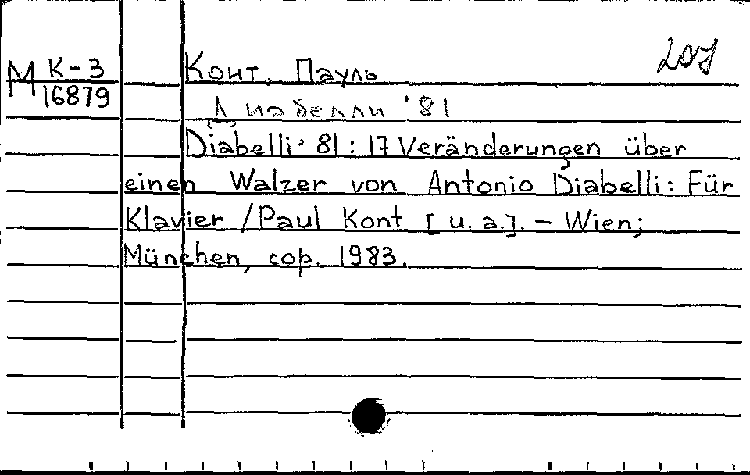 М К-3
16879
Конт, Пауль
Диабелли '81
Diabelli' 81 : 17 Veränderungen über
einen Walzer von Antonio Diabelli: Für
Klavier / Paul Kont [u. a.]. – Wien;
München, cop. 1983.